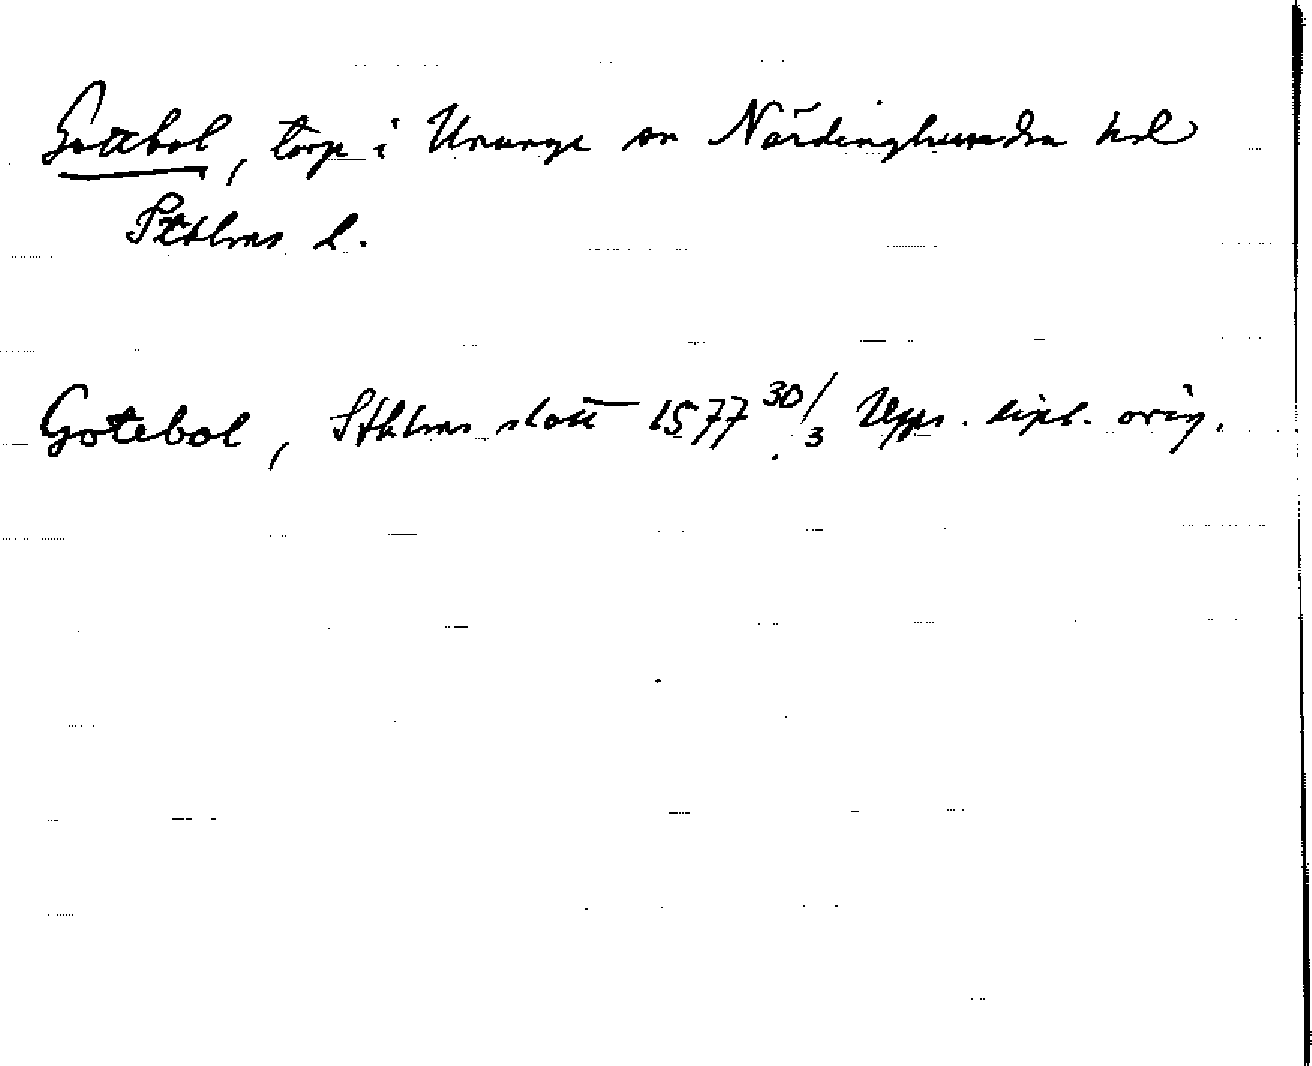 Gottbol, torp i Ununge sn Närdinghundra hd
Sthlms l.
Gotebol, Sthlms slott 1577 30/3 Upps. dipl. orig.